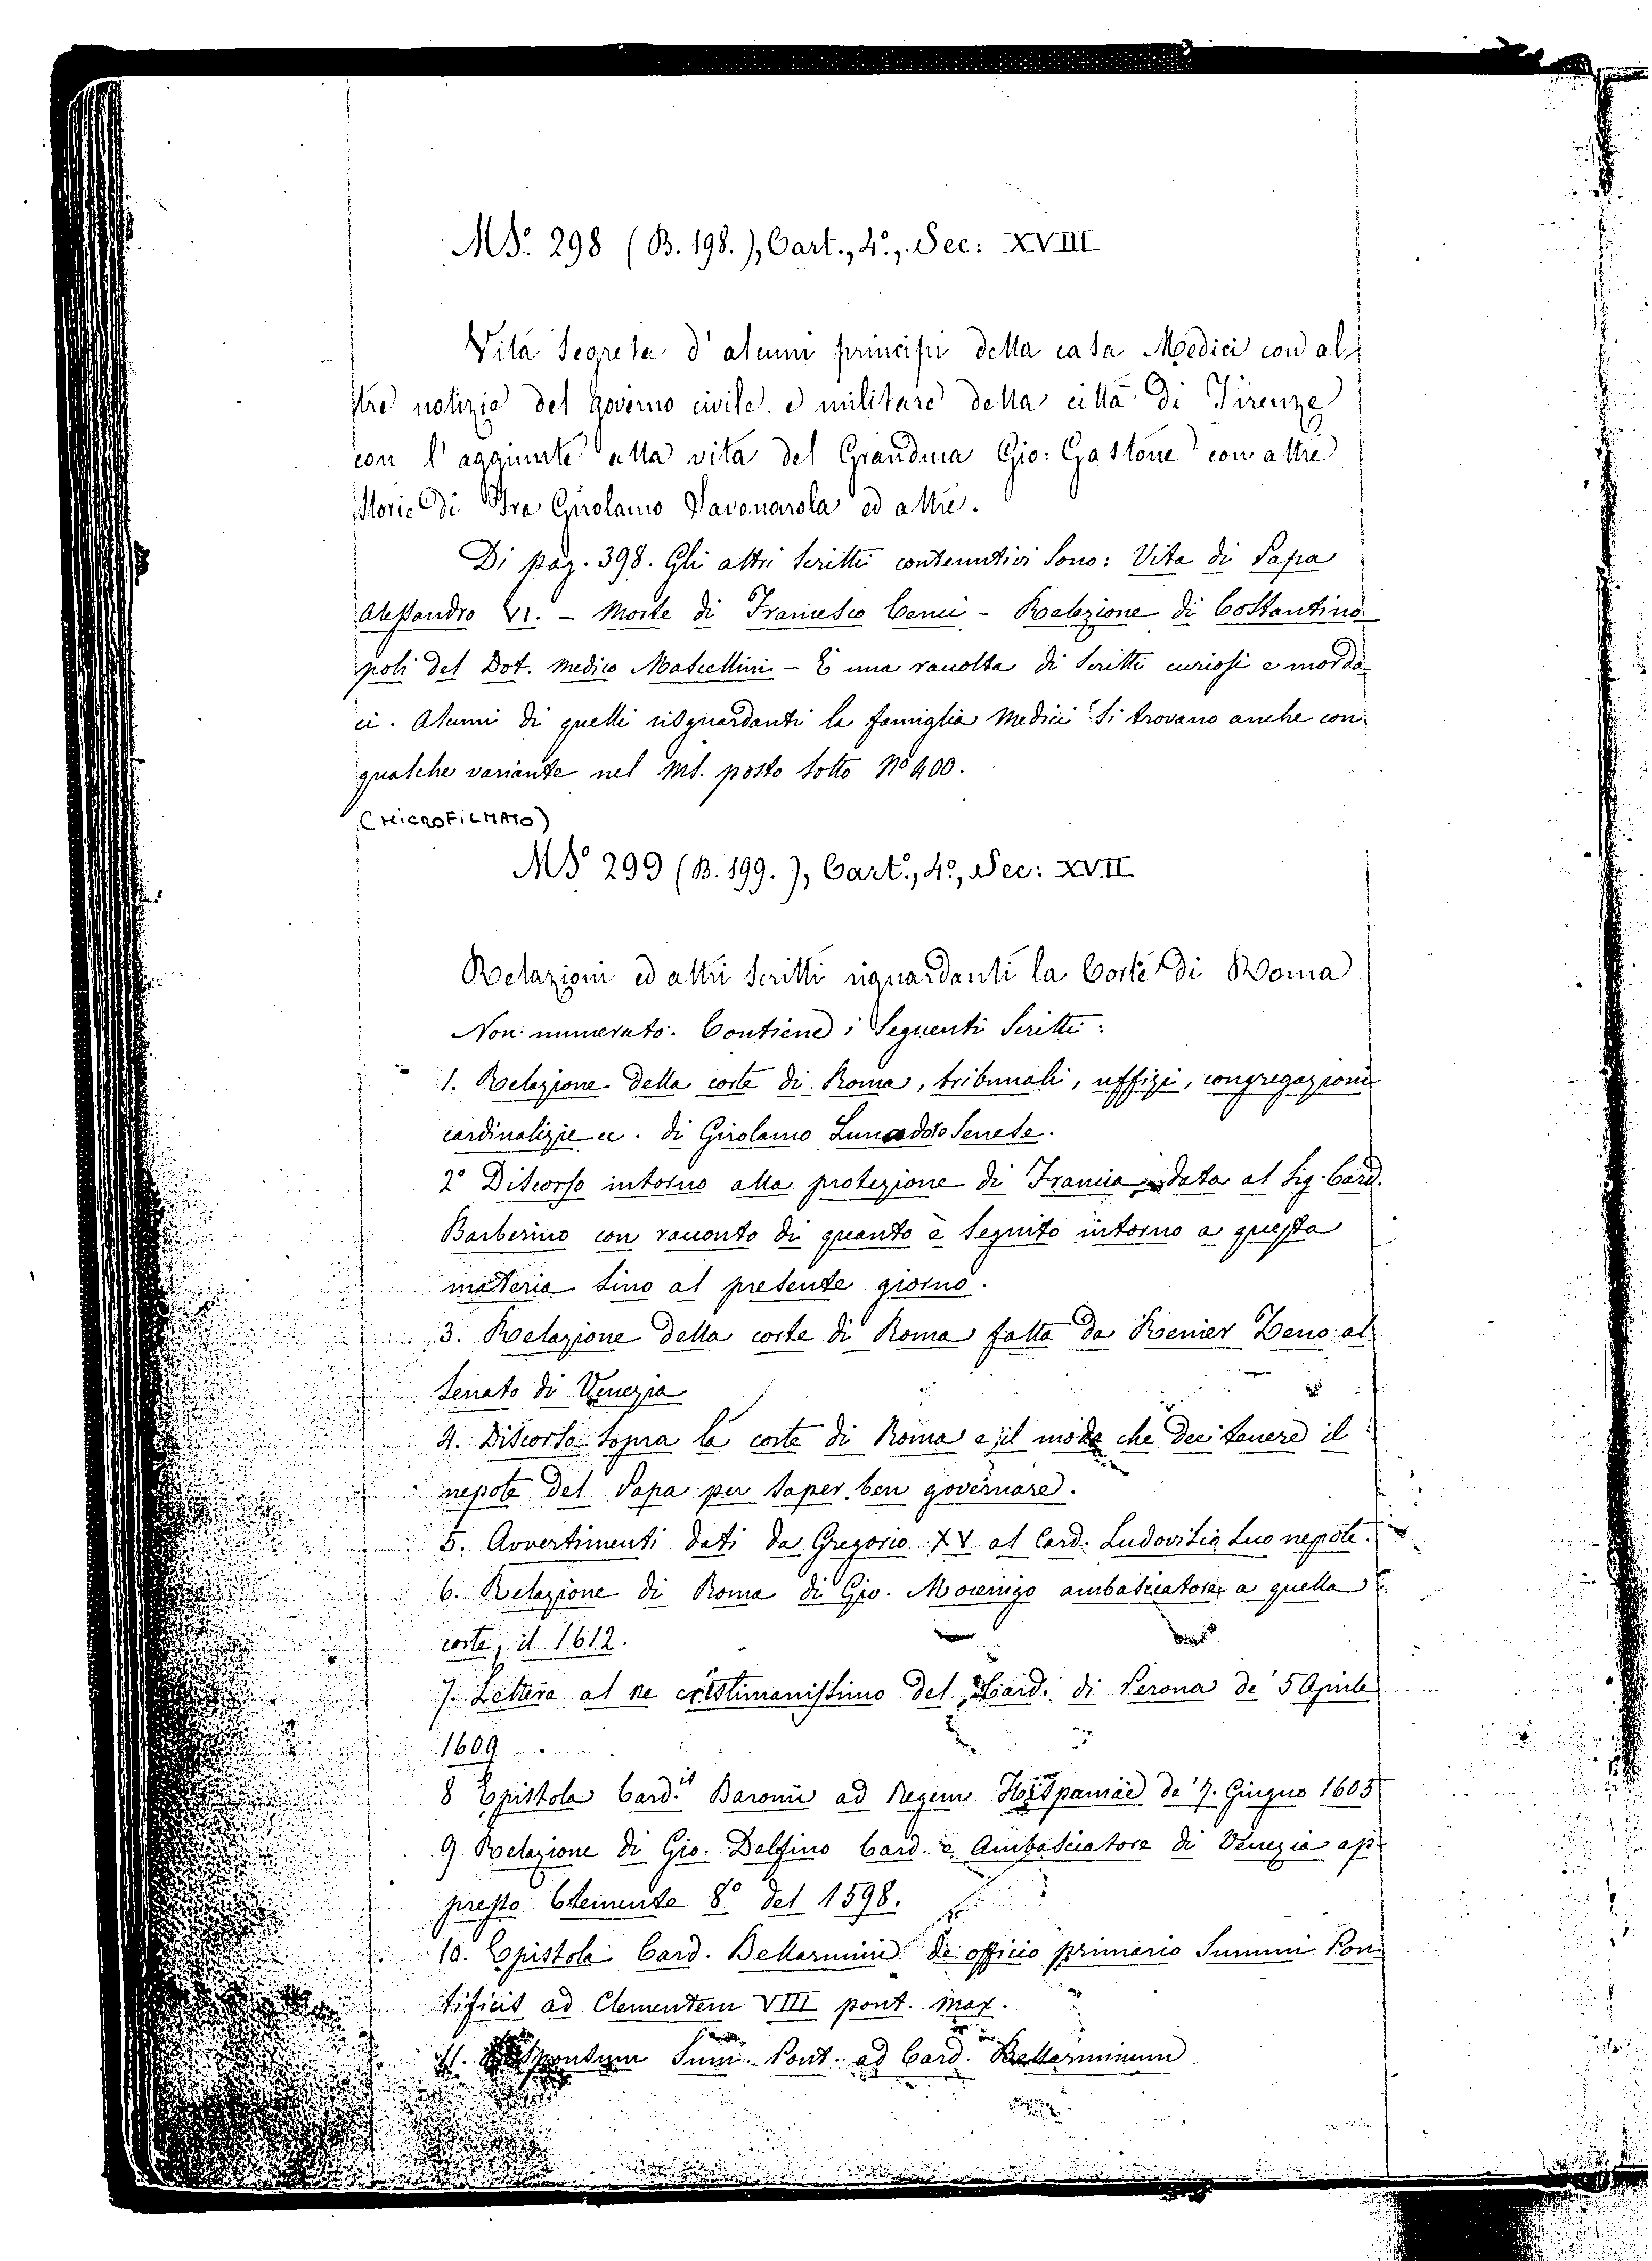 MS. 298 (B. 198.), Cart., 4°, Sec: XVIII
Vita segreta d'alcuni principi della casa Medici con al-
tre notizie del governo civile e militare della città di Firenze
con l'aggiunte alla vita del Granduca Gio: Gastone con altre
storie di Fra Girolamo Savonarola ed altri.
Di pag. 398. Gli altri scritti contenutivi sono: Vita di Papa
Alessandro VI. – Morte di Francesco Cenci – Relazione di Costantino-
poli del Dot. medico Mascellini – È una raccolta di scritti curiosi e morda-
ci. Alcuni di quelli risguardanti la famiglia Medici si trovano anche con
qualche variante nel ms. posto sotto N° 400.
(MICROFILMATO)
MS 299 (B. 199.), Cart., 4°, Sec: XVII
Relazioni ed altri scritti riguardanti la Corte di Roma
Non numerato. Contiene i seguenti scritti:
1. Relazione della corte di Roma, tribunali, uffizi, congregazioni
cardinalizie ec. di Girolamo Lunadoro Senese.
2° Discorso intorno alla protezione di Francia data al Sig. Card.
Barberino con racconto di quanto è seguito intorno a questa
materia sino al presente giorno.
3. Relazione della corte di Roma fatta da Renier Zeno al
Senato di Venezia
4. Discorso sopra la corte di Roma e il modo che dee tenere il
nepote del Papa per saper ben governare.
5. Avvertimenti dati da Gregorio XV al Card. Ludovisio suo nepote.
6. Relazione di Roma di Gio. Mocenigo ambasciatore a quella
corte, il 1612.
7. Lettera al re cristianissimo del Card. di Perona de' 5 Aprile
1609
8 Epistola Card.is Baronii ad Regem Hispaniae de' 7. Giugno 1605
9 Relazione di Gio. Delfino Card. e Ambasciatore di Venezia ap-
presso Clemente 8° del 1598.
10. Epistola Card. Bellarmini de officio primario Summi Pon-
tificis ad Clementem VIII pont. max.
11. Responsum Sum. Pont. ad Card. Bellarminum